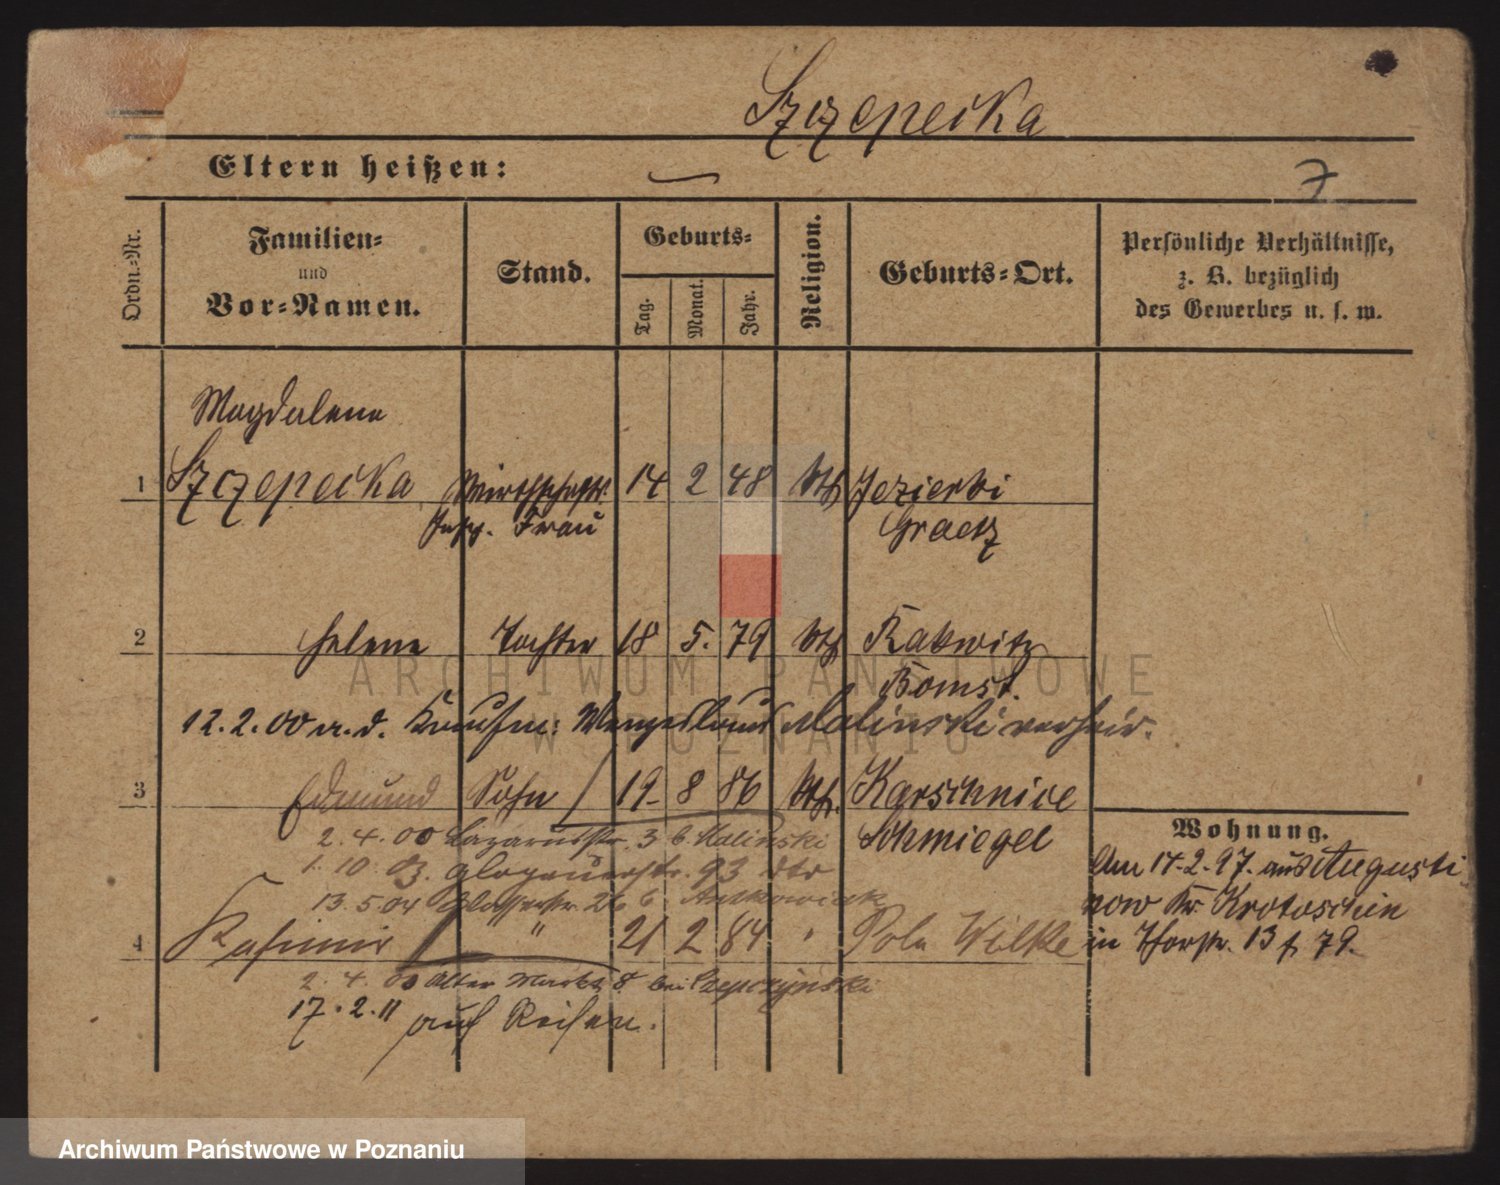 Szczepecka
Eltern heißen:
7
Ordn.-Nr.
Familien-
und
Vor-Namen.
Stand.
Geburts-
Tag.
Monat.
Jahr.
Religion.
Geburts-Ort.
Persönliche Verhältnisse,
z. B. bezüglich
des Gewerbes u. s. w.
Magdalene
1 Szczepecka Wirthschafts. 14 2 48 kth Jezierki
Insp. Frau Graetz
2 Helene Tochter 18 5. 79 kth Kakwitz
Bomst.
12.2.00 a. d. Kaufm: Wenzeslaus Malinski verheir.
3 Edmund Sohn 19 8 86 kth. Karschnice
Schmiegel
2.4.00 Lazarusstr. 3 b. Malinski
1.10.03. Glogauerstr. 93 dto
13.5.04 26 b
4 Kasimir " 21 2 84 Poln Wilke
2.4.00 Alter Markt 8 bei Szepczynski
17.2.11 auf Reisen.
Wohnung.
Am 17.2.97. aus Augusti
now Kr. Krotoschin
in 13 f. 79.
ARCHIWUM PAŃSTWOWE
W POZNANIU
Archiwum Państwowe w Poznaniu